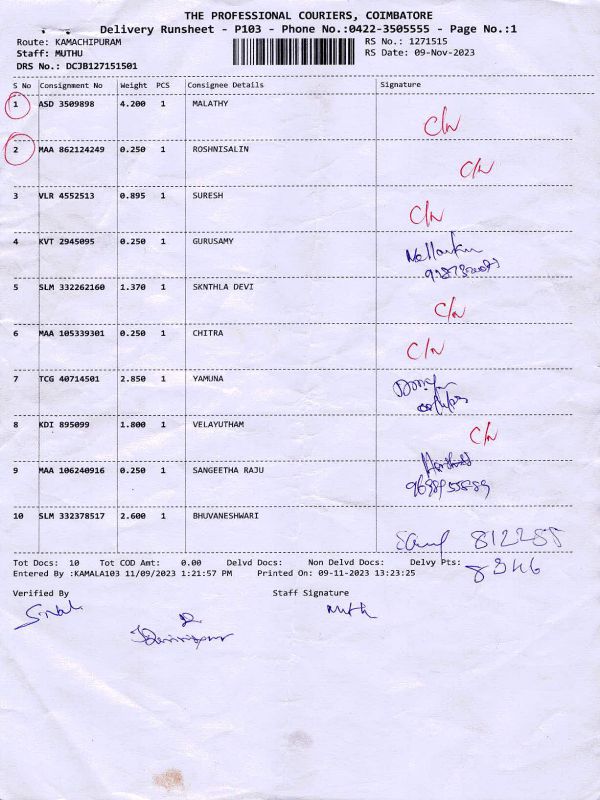 THE PROFESSIONAL COURIERS, COIMBATORE
Delivery Runsheet - P103 - Phone No.:0422-3505555 - Page No.:1
Route: KAMACHIPURAM RS No.: 1271515
Staff: MUTHU RS Date: 09-Nov-2023
DRS No.: DCJB127151501
S No Consignment No Weight PCS Consignee Details Signature
1 ASD 3509898 4.200 1 MALATHY
C/N
2 MAA 862124249 0.250 1 ROSHNISALIN
C/N
3 VLR 4552513 0.895 1 SURESH
C/N
4 KVT 2945095 0.250 1 GURUSAMY
5 SLM 332262160 1.370 1 SKNTHLA DEVI
C/N
6 MAA 105339301 0.250 1 CHITRA
C/N
7 TCG 40714501 2.850 1 YAMUNA
8 KDI 895099 1.800 1 VELAYUTHAM
C/N
9 MAA 106240916 0.250 1 SANGEETHA RAJU
10 SLM 332378517 2.600 1 BHUVANESHWARI
812285
8346
Tot Docs: 10 Tot COD Amt: 0.00 Delvd Docs: Non Delvd Docs: Delvy Pts:
Entered By :KAMALA103 11/09/2023 1:21:57 PM Printed On: 09-11-2023 13:23:25
Verified By Staff Signature
Muth